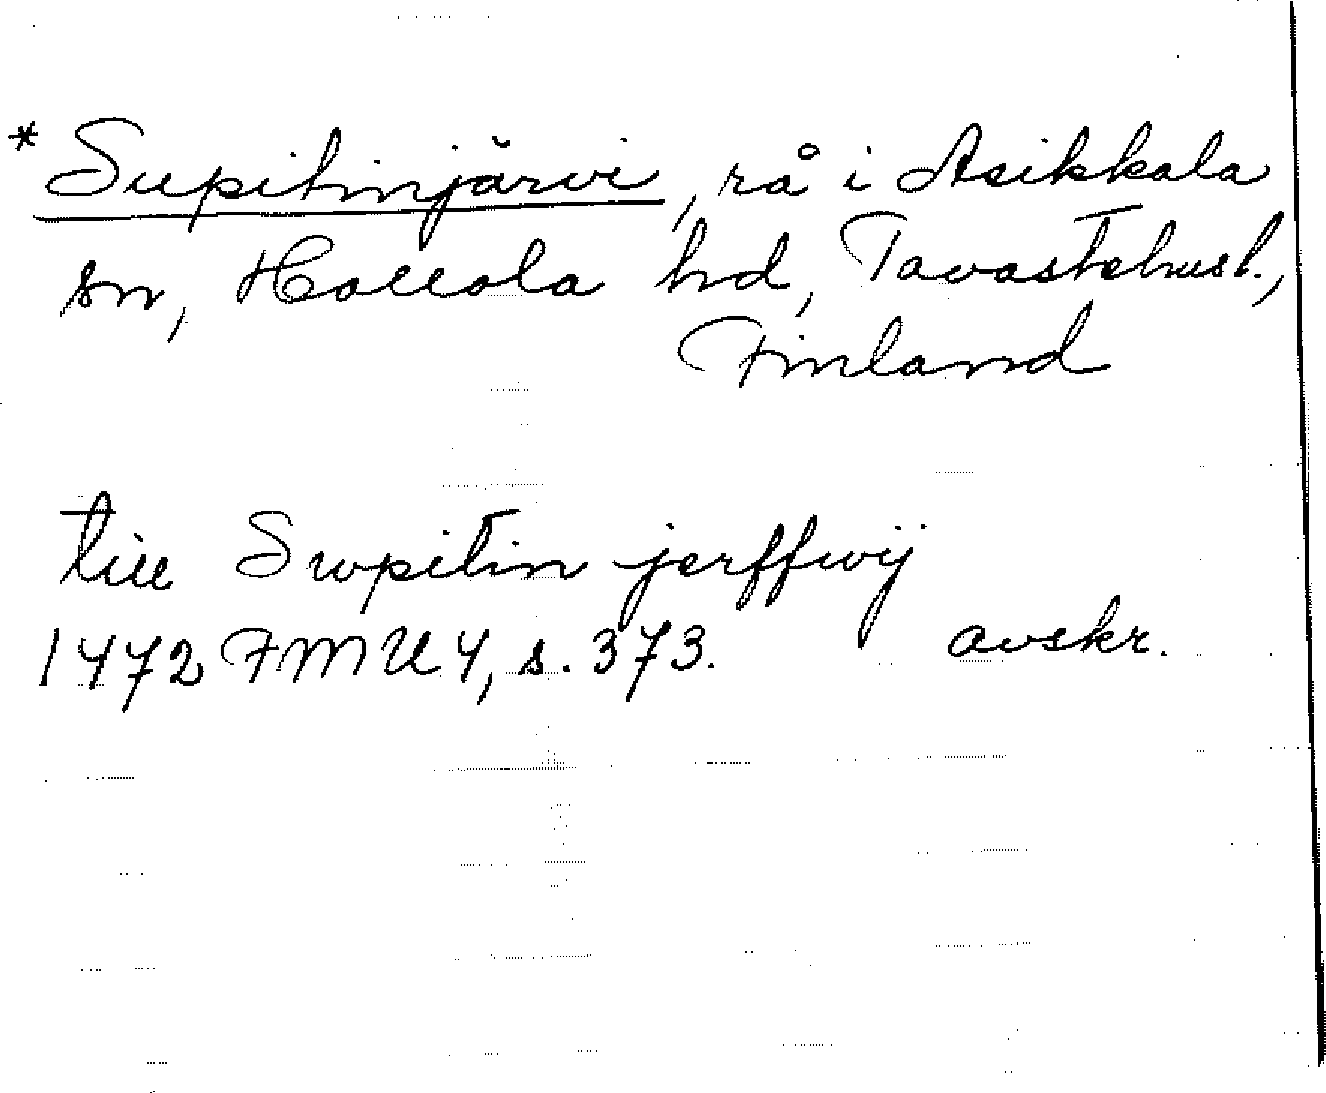 * Supitinjärvi, rå i Asikkala
sn, Hollola hd, Tavastehusl.,
Finland
till Swpitin jerffwij
1472 FMU 4, s. 373. avskr.